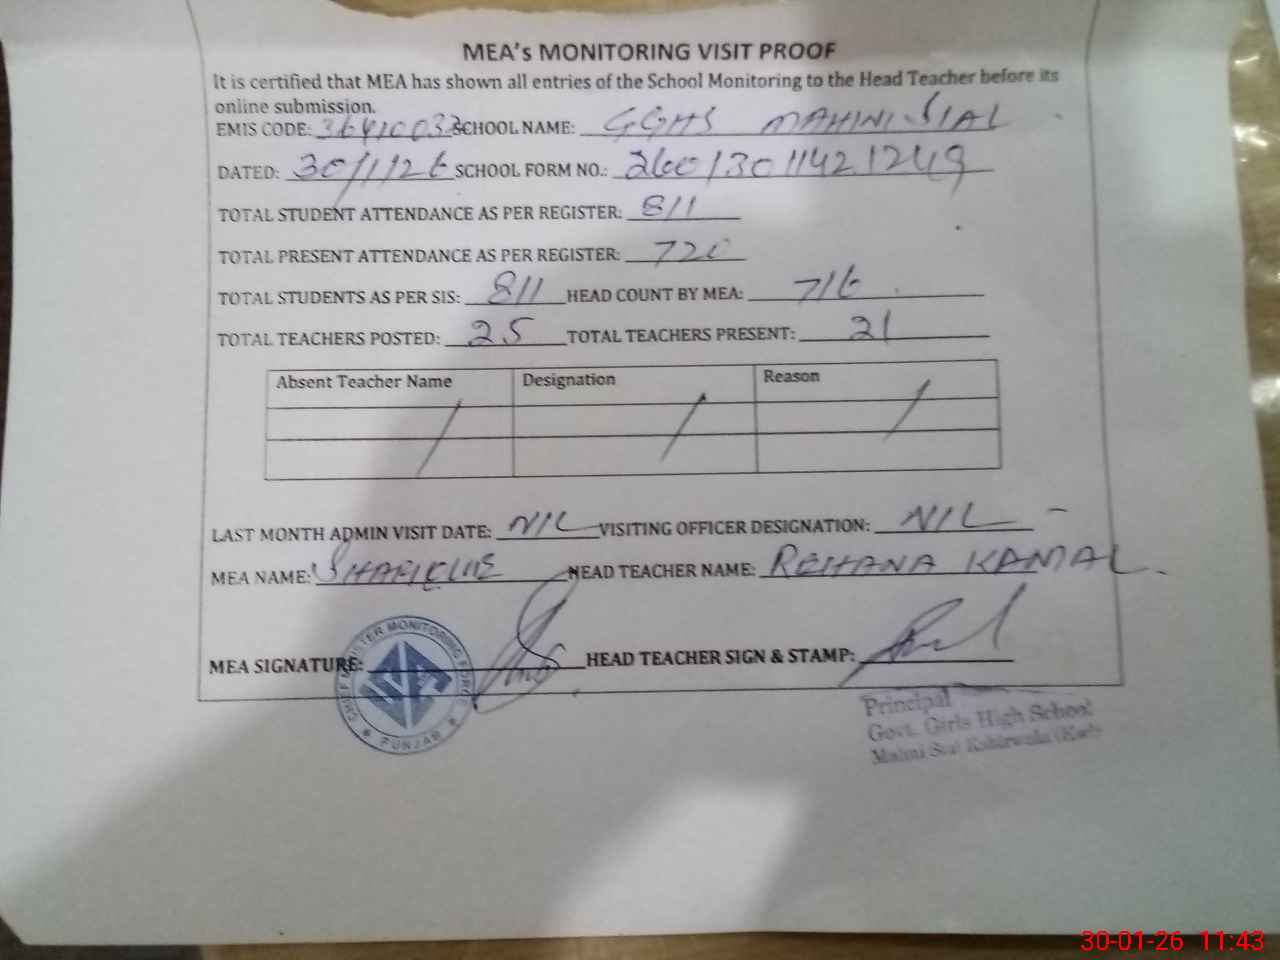 MEA's MONITORING VISIT PROOF
It is certified that MEA has shown all entries of the School Monitoring to the Head Teacher before its
online submission.
EMIS CODE: SCHOOL NAME: GGHS MAHINI SIAL
DATED: 30/1/26 SCHOOL FORM NO.:
TOTAL STUDENT ATTENDANCE AS PER REGISTER: 811
TOTAL PRESENT ATTENDANCE AS PER REGISTER: 720
TOTAL STUDENTS AS PER SIS: 811 HEAD COUNT BY MEA: 716
TOTAL TEACHERS POSTED: 25 TOTAL TEACHERS PRESENT: 21
Absent Teacher Name Designation Reason
LAST MONTH ADMIN VISIT DATE: NIL VISITING OFFICER DESIGNATION: NIL
MEA NAME: HEAD TEACHER NAME: REHANA KAMAL
MEA SIGNATURE: HEAD TEACHER SIGN & STAMP:
CHIEF MINISTER MONITORING FORCE
PUNJAB
Principal
Govt. Girls High School
30-01-26 11:43